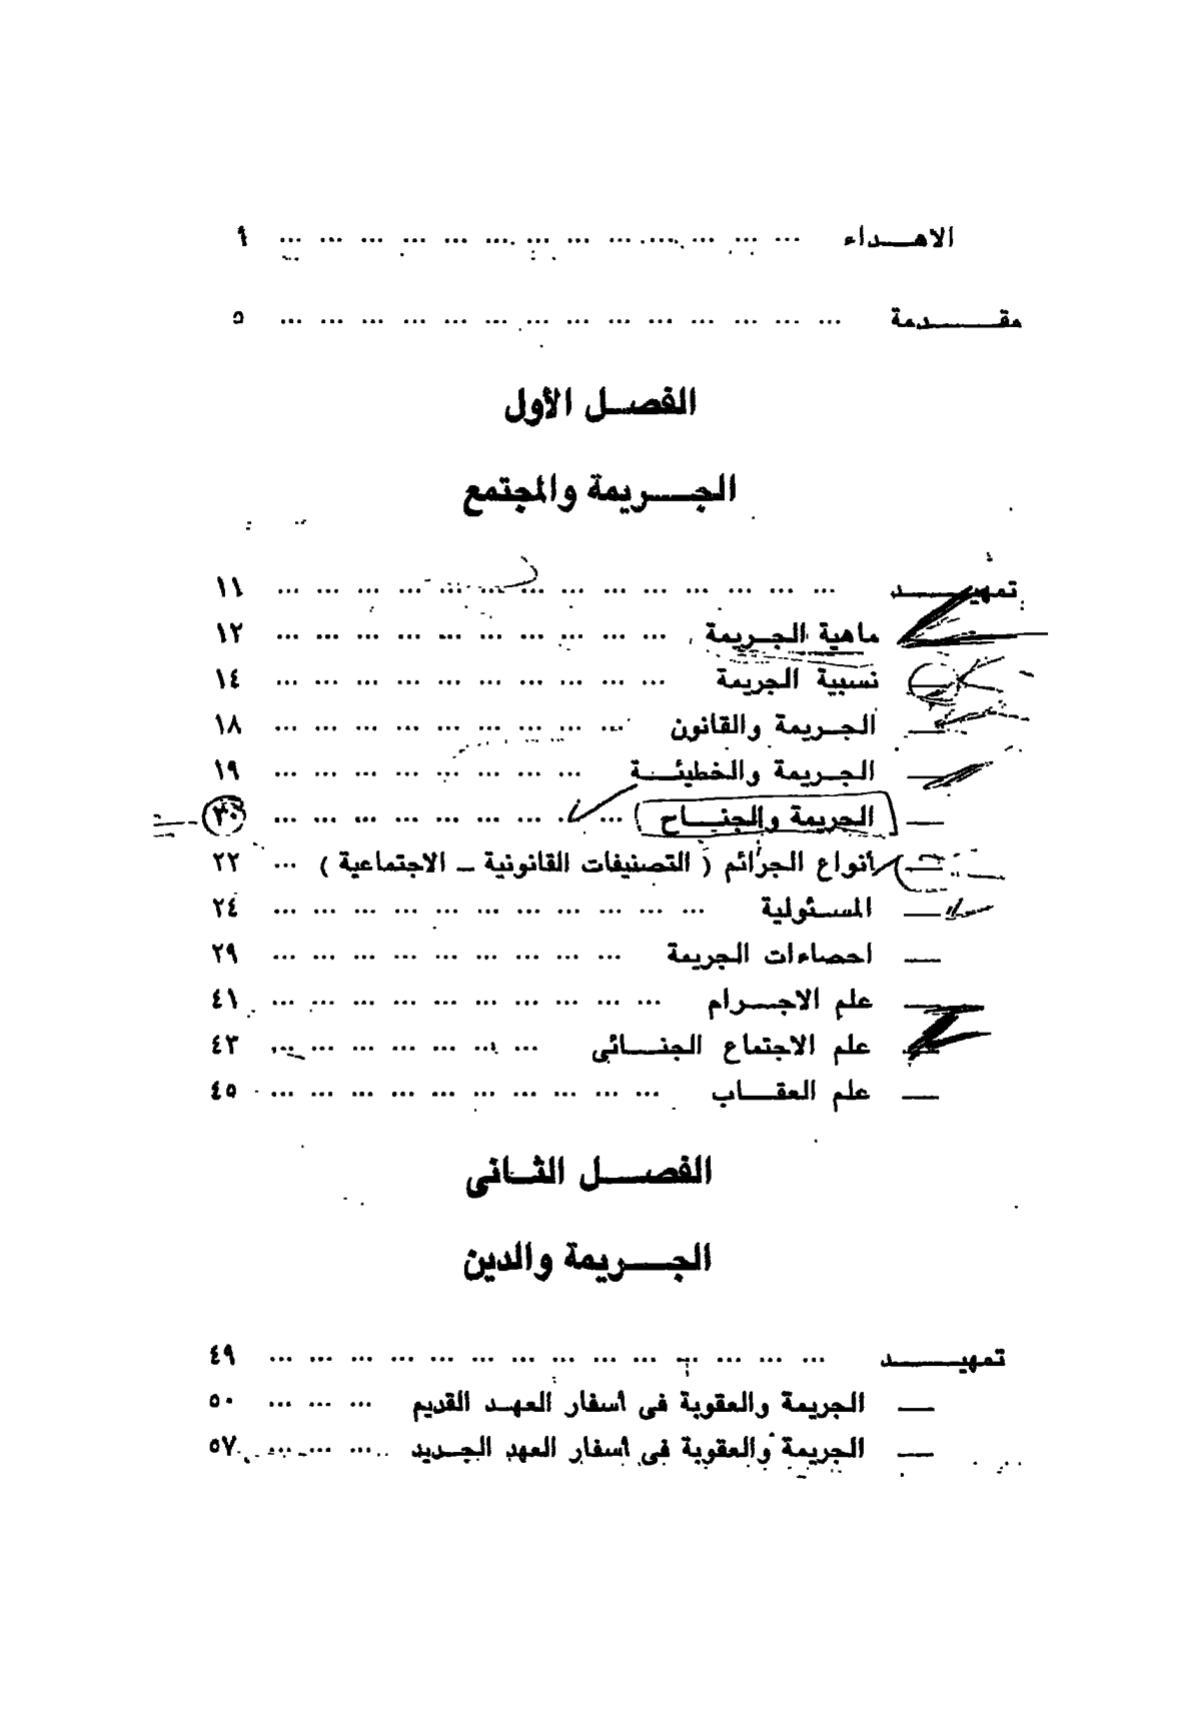 الاهـــداء ... ... ... ... ... ... ... ... ... ... ... ... ... أ
مقـــدمة ... ... ... ... ... ... ... ... ... ... ... ... ... ... ٥
الفصــل الأول
الجــريمة والمجتمع
تمهيـــد ... ... ... ... ... ... ... ... ... ... ... ... ... ... ١١
ماهية الجــريمة ... ... ... ... ... ... ... ... ... ... ١٢
— نسبية الجريمة ... ... ... ... ... ... ... ... ... ... ١٤
— الجــريمة والقانون ... ... ... ... ... ... ... ... ... ١٨
— الجــريمة والخطيئــة ... ... ... ... ... ... ... ... ١٩
— الجريمة والجنـــاح ... ... ... ... ... ... ... ... ...
— أنواع الجرائم ( التصنيفات القانونية – الاجتماعية ) ... ٢٢
— المسـئولية ... ... ... ... ... ... ... ... ... ... ... ٢٤
— احصاءات الجريمة ... ... ... ... ... ... ... ... ... ٢٩
— علم الاجــرام ... ... ... ... ... ... ... ... ... ... ٤١
— علم الاجتماع الجنــائى ... ... ... ... ... ... ... ٤٣
— علم العقــاب ... ... ... ... ... ... ... ... ... ... ٤٥
الفصــل الثــانى
الجــريمة والدين
تمهيـــد ... ... ... ... ... ... ... ... ... ... ... ... ... ... ٤٩
— الجريمة والعقوبة فى أسفار العهـد القديم ... ... ... ٥٠
— الجريمة والعقوبة فى أسفار العهد الجــديد ... ... ... ٥٧